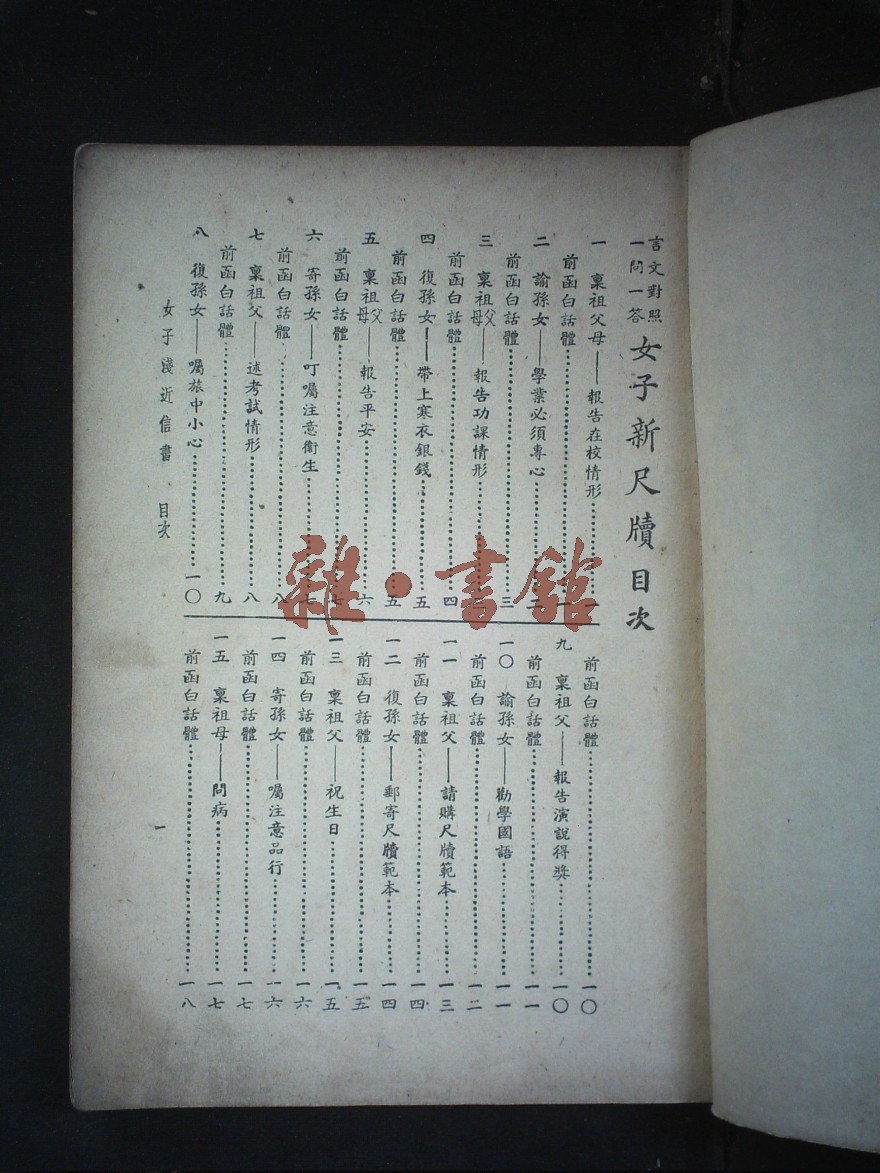 言文對照
一問一答
女子新尺牘目次
一 稟祖父母——報告在校情形……一
前函白話體……
二 諭孫女——學業必須專心……二
前函白話體……三
三 稟祖父母——報告功課情形……
前函白話體……四
四 復孫女——帶上寒衣銀錢……五
前函白話體……五
五 稟祖父母——報告平安……六
前函白話體……七
六 寄孫女——叮囑注意衞生……七
前函白話體……八
七 稟祖父——述考試情形……八
前函白話體……九
八 復孫女——囑旅中小心……一〇
前函白話體……一〇
九 稟祖父——報告演說得獎……一〇
前函白話體……一一
一〇 諭孫女——勸學國語……一一
前函白話體……一二
一一 稟祖父——請購尺牘範本……一三
前函白話體……一四
一二 復孫女——郵寄尺牘範本……一四
前函白話體……一五
一三 稟祖父——祝生日……一五
前函白話體……一六
一四 寄孫女——囑注意品行……一六
前函白話體……一七
一五 稟祖母——問病……一七
前函白話體……一八
女子淺近信書 目次 一
雜·書館